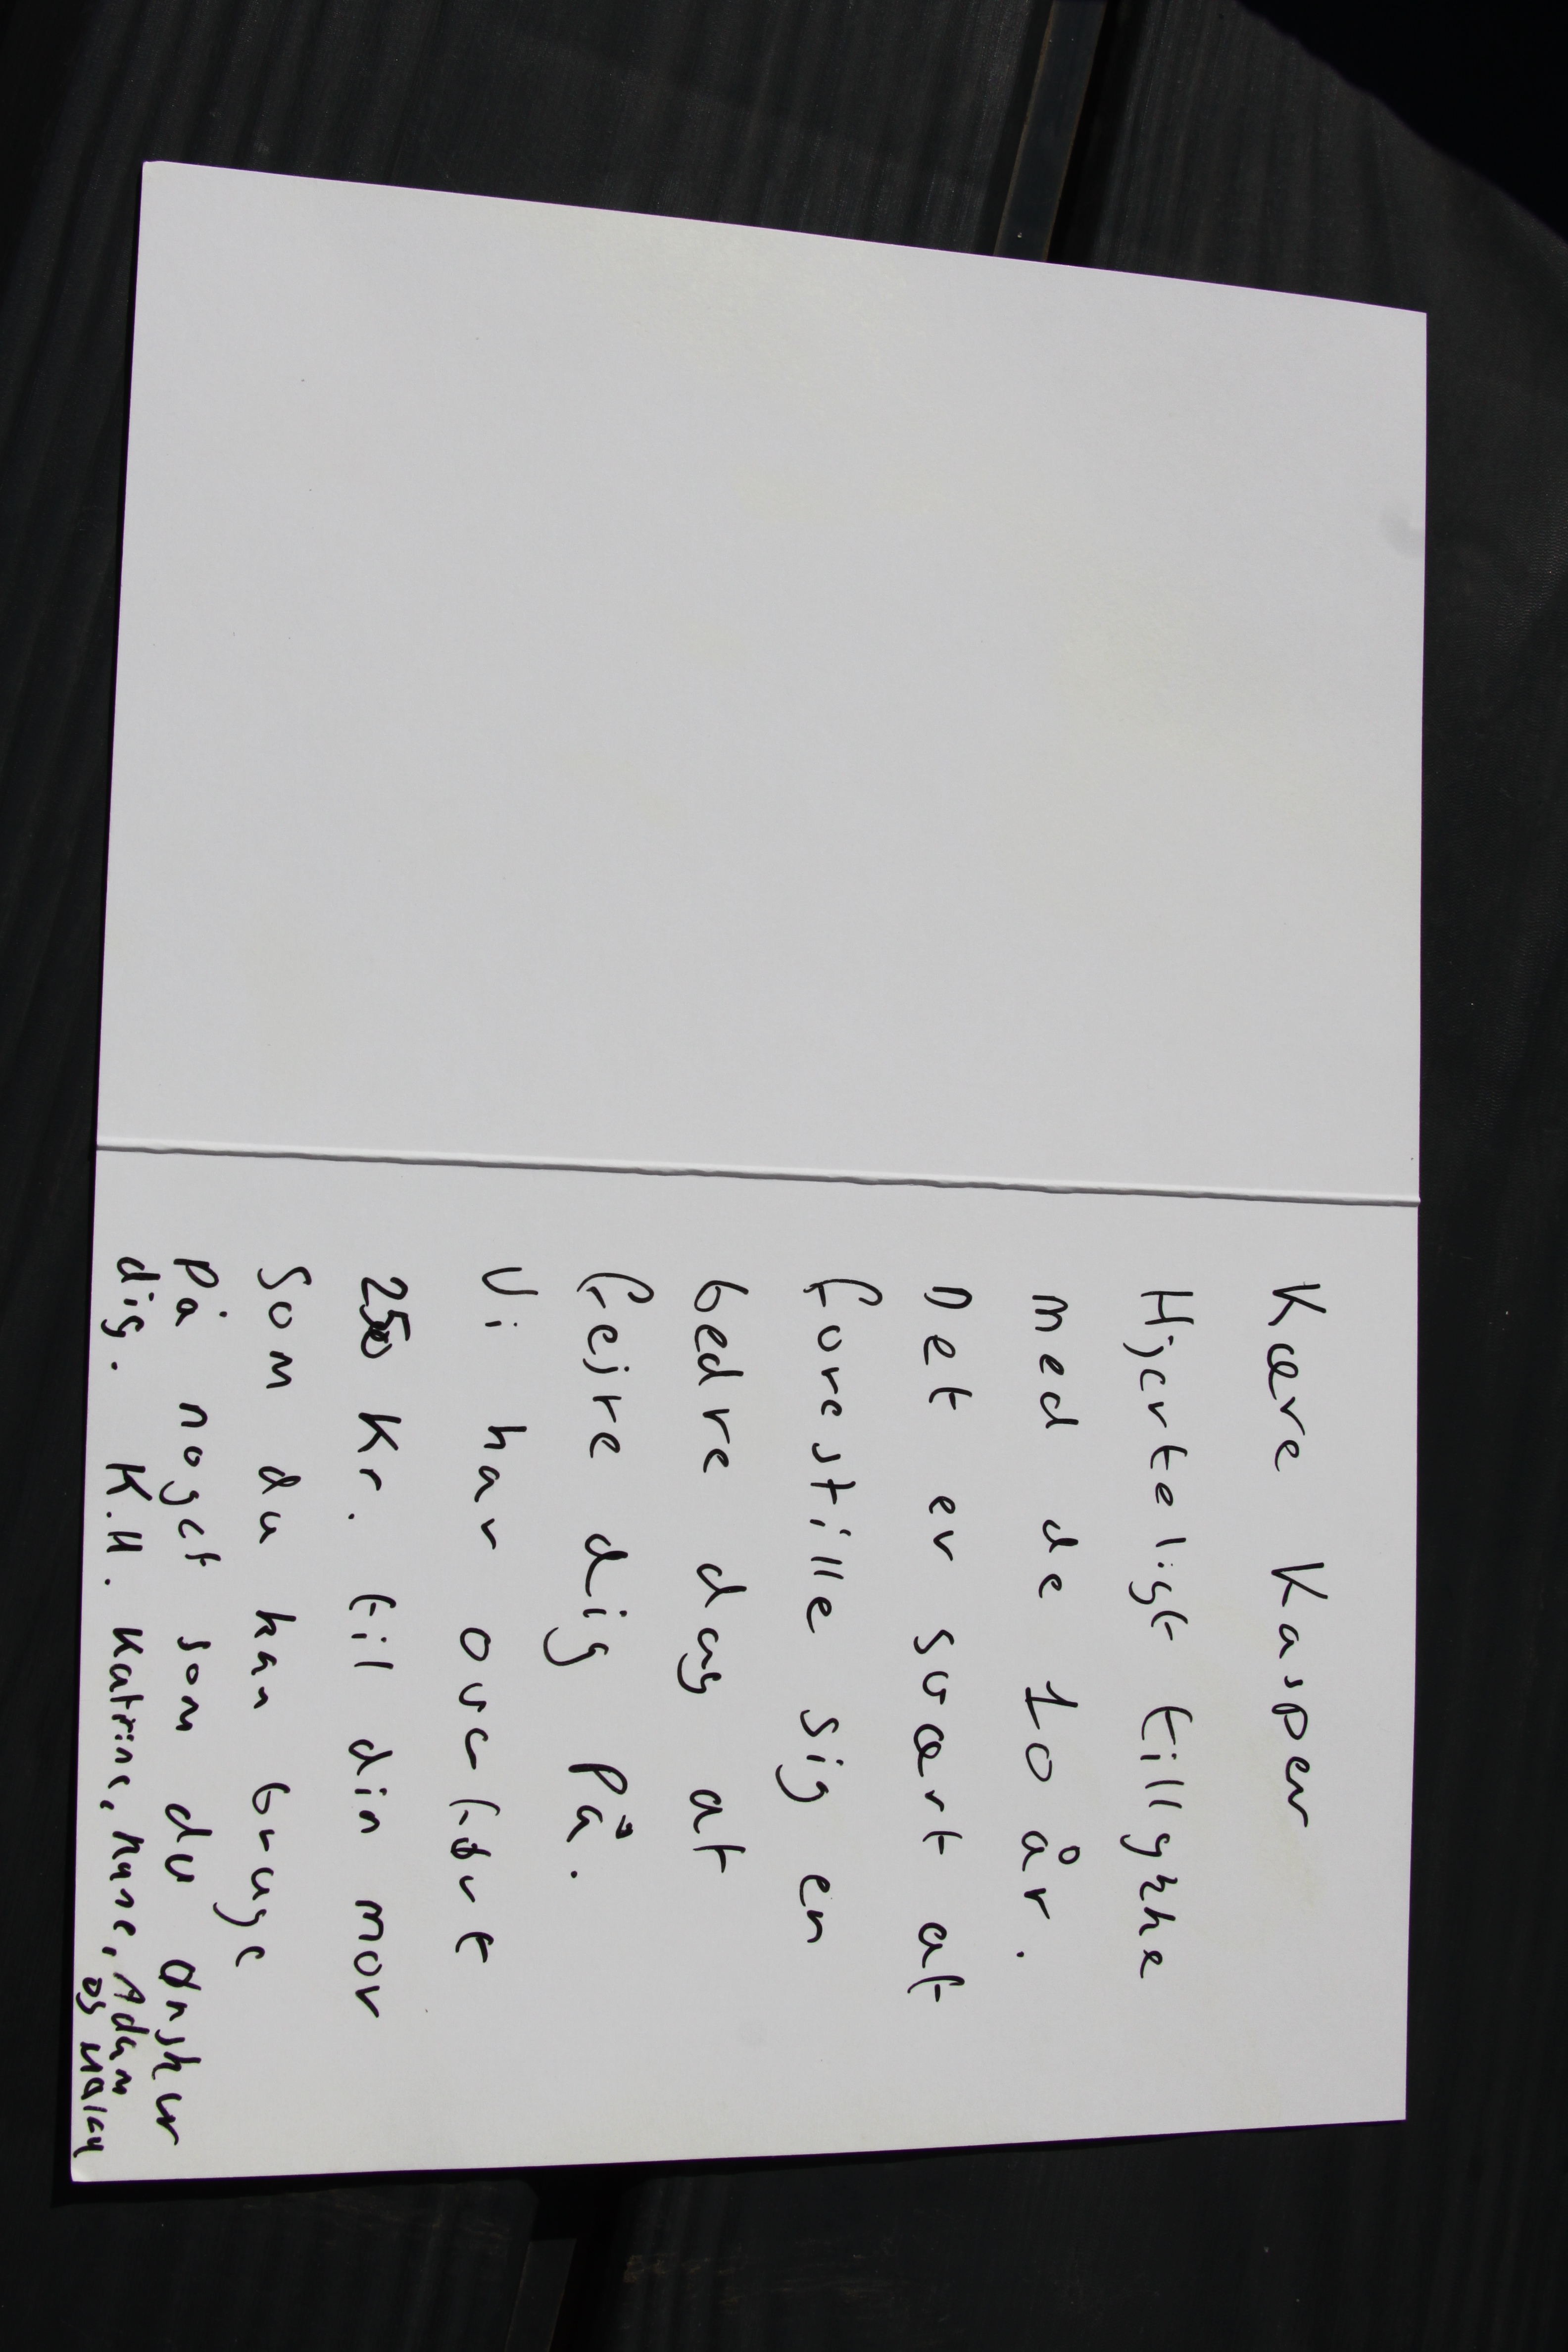 Kære Kasper
Hjerteligt tillykke
med de 10 år.
Det er svært at
forestille sig en
bedre dag at
fejre dig på.
Vi har overført
250 Kr. til din mor
Som du kan bruge
på noget som du ønsker
dig. K.H. Katrine, Adam
og